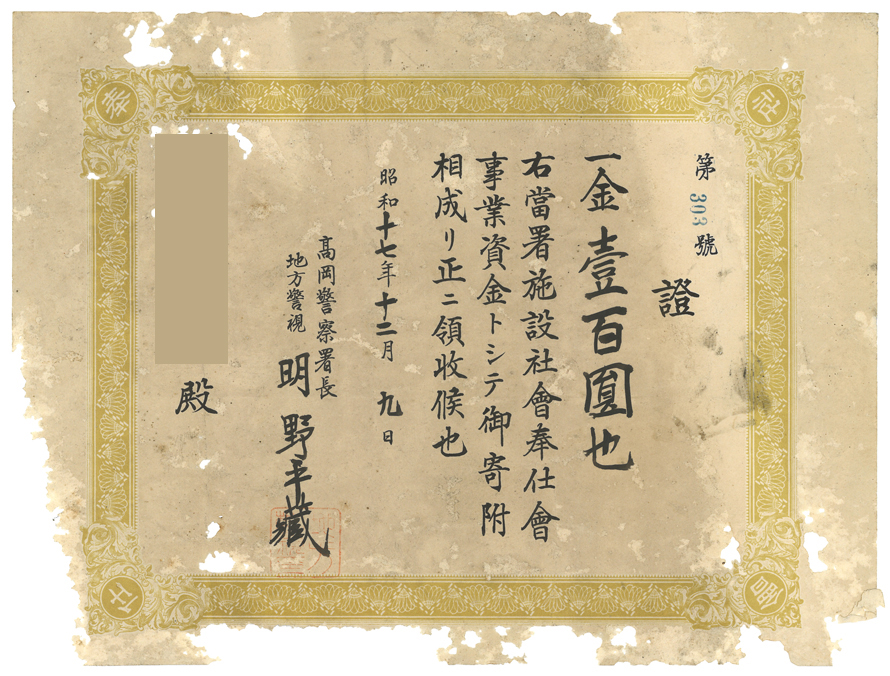 第303號
證
一金壹百圓也
右當署施設社會奉仕會
事業資金トシテ御寄附
相成リ正ニ領收候也
昭和十七年十二月九日
高岡警察署長
地方警視
明野平藏
殿
社
會
奉
仕